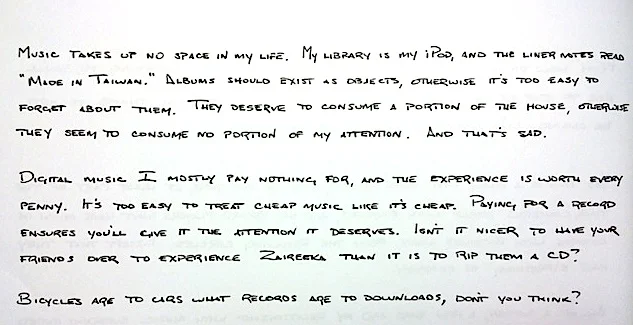 Music takes up no space in my life. My library is my iPod, and the liner notes read
"Made in Taiwan." Albums should exist as objects, otherwise it's too easy to
forget about them. They deserve to consume a portion of the house, otherwise
they seem to consume no portion of my attention. And that's sad.
Digital music I mostly pay nothing for, and the experience is worth every
penny. It's too easy to treat cheap music like it's cheap. Paying for a record
ensures you'll give it the attention it deserves. Isn't it nicer to have your
friends over to experience Zaireeka than it is to rip them a CD?
Bicycles are to cars what records are to downloads, don't you think?